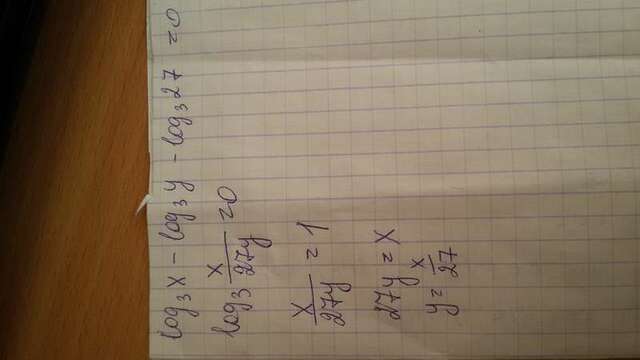 log₃x - log₃y - log₃27 = 0
log₃ x/27y = 0
x/27y = 1
27y = x
y = x/27